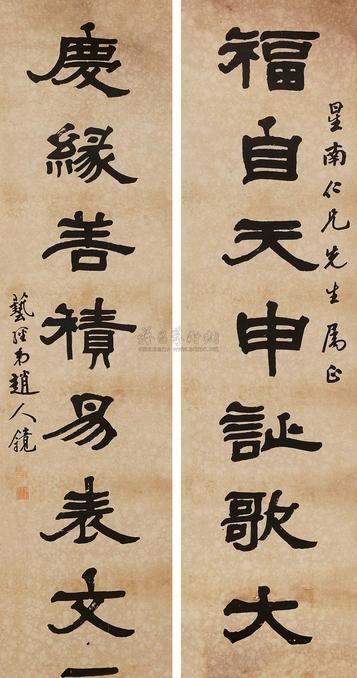 星南仁兄先生属正
福自天申誕歌大
慶緣善積易表文
藝經弟趙人鏡